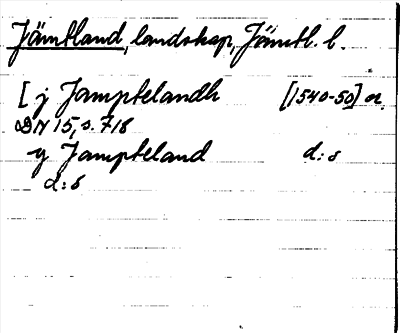 Jämtland, landskap, Jämtl. l.
[j Jamptelandh [1540-50] or.
DN 15, s. 718
y Jampteland d:o
d:o